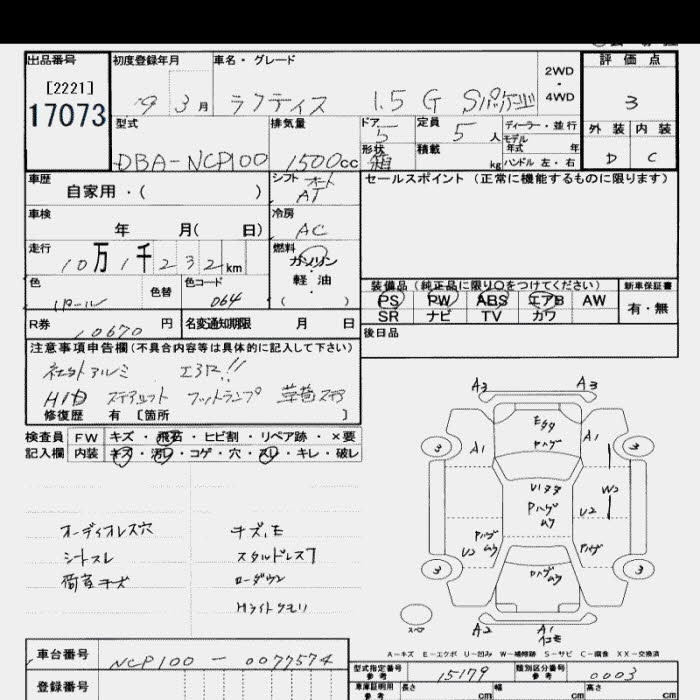 出品番号 初度登録年月 車名・グレード 2WD・4WD 評価点
[2221]
17073 19 3月 ラクティス 1.5 G Sパッケージ 3
型式 排気量 ドア 5 定員 5人 ディーラー・並行 外装 内装
モデル年式 年
DBA-NCP100 1500cc 形状 箱 積載 kg ハンドル 左・右 D C
車歴 シフト オート セールスポイント (正常に機能するものに限ります)
自家用・( ) AT
車検 冷房
年 月( 日) AC
走行 燃料
10万1千232km ガソリン・軽油
色 色替 色コード ( ) 装備品 (純正品に限り○をつけてください) 新車保証書
パール 064 PS PW ABS エアB AW 有・無
SR ナビ TV カワ
R券 10670円 名変通知期限 月 日
後日品
注意事項申告欄 (不具合内容等は具体的に記入して下さい)
社外アルミ エアロ!!
HID ステアシフト フットランプ
修復歴 有 [箇所 ]
検査員記入欄 FW キズ・飛石・ヒビ割・リペア跡・×要
内装 キズ・汚レ・コゲ・穴・スレ・キレ・破レ
A3 A3
3 A1 A1 3
W2
U2
U2
3 3
スペア
A2 A1
オーディオレス穴 キズ、モ
シートスレ スタルドレス7
荷室キズ ローダウン
Hライトクモリ
A-キズ E-エクボ U-凹み W-補修跡 S-サビ C-腐食 XX-交換済
車台番号 NCP100-0077574
型式指定番号 参考 15179 類別区分番号 参考 0003
登録番号
車庫証明用 参考 長さ cm 幅 cm 高さ cm